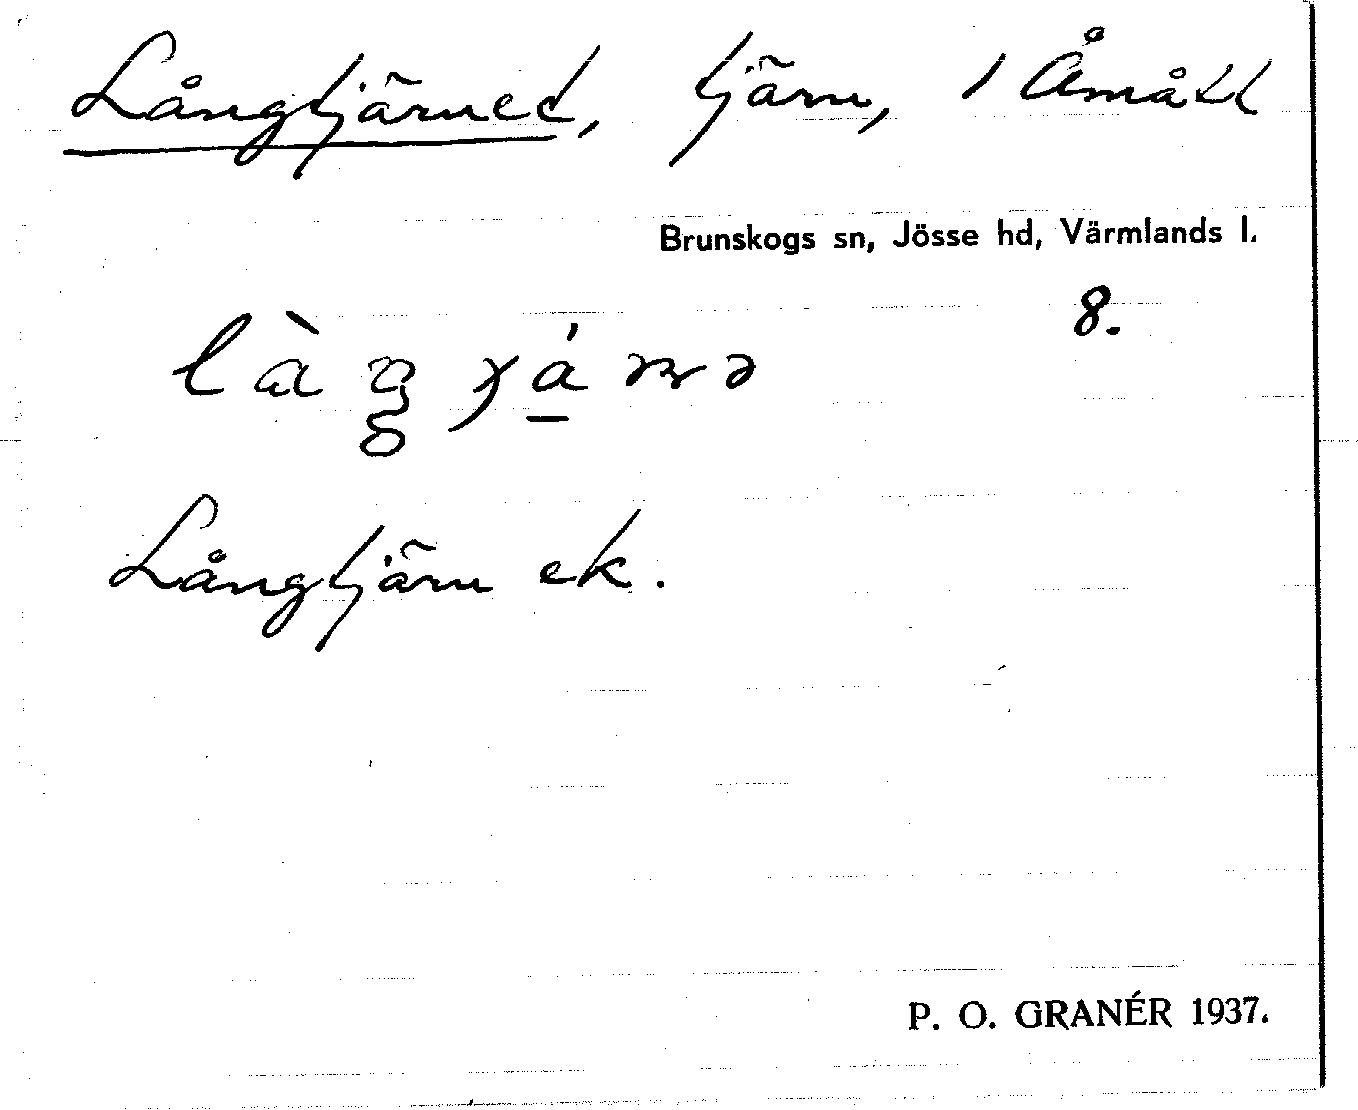 Långtjärnet, tjärn, i Åmått
Brunskogs sn, Jösse hd, Värmlands l.
8.
Långtjärn ek.
P. O. GRANÉR 1937.